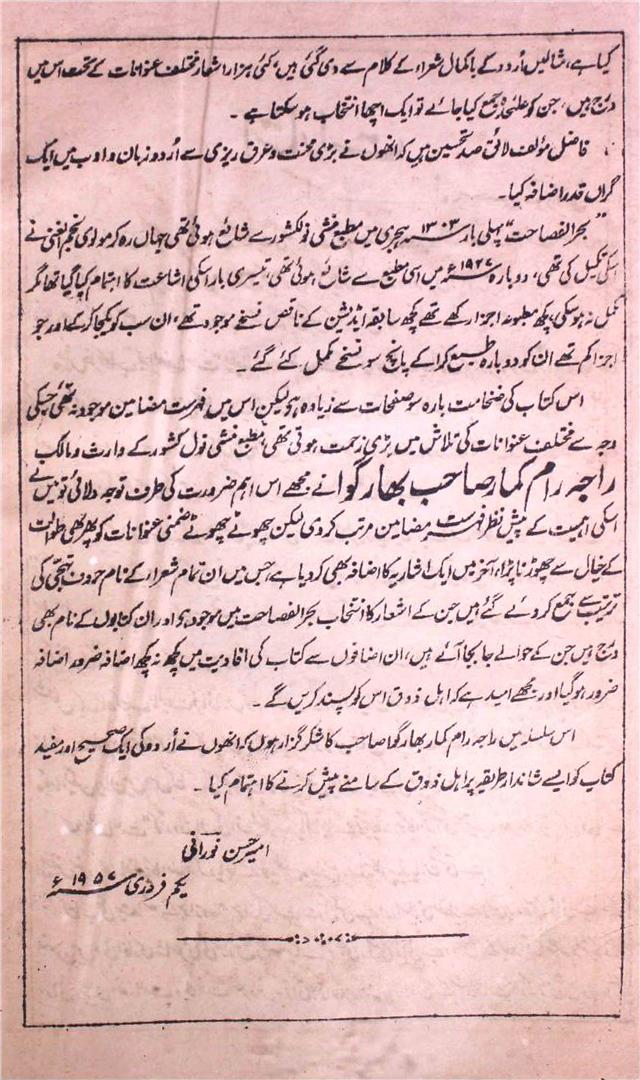 کیا ہے، مثالیں اُردو کے باکمال شعراء کے کلام سے دی گئی ہیں، کئی ہزار اشعار مختلف عنوانات کے تحت اس میں
درج ہیں، جن کو علیٰحدہ جمع کیا جائے تو ایک اچھا انتخاب ہو سکتا ہے۔
فاضل مؤلف لائق صد تحسین ہیں کہ انھوں نے بڑی محنت و عرق ریزی سے اُردو زبان و ادب میں ایک
گراں قدر اضافہ کیا۔
"بحر الفصاحت" پہلی بار ۱۳۰۳ ہجری میں مطبع منشی نولکشور سے شائع ہوئی تھی جہاں رہ کر مولوی نجم الغنی نے
اسکی تکمیل کی تھی، دوبارہ ۱۹۲۷ء میں اسی مطبع سے شائع ہوئی تھی، تیسری بار اسکی اشاعت کا اہتمام کیا گیا تھا مگر
مکمل نہ ہو سکی، کچھ مطبوعہ اجزار کھے تھے کچھ سابقہ ایڈیشن کے ناقص نسخے موجود تھے، ان سب کو یکجا کر کے اور جو
اجزا کم تھے ان کو دوبارہ طبع کرا کے پانچ سو نسخے مکمل کئے گئے۔
اس کتاب کی ضخامت بارہ سو صفحات سے زیادہ ہو لیکن اس میں فہرست مضامین موجود نہ تھی جسکی
وجہ سے مختلف عنوانات کی تلاش میں بڑی زحمت ہوتی تھی، مطبع منشی نول کشور کے وارث و مالک
راجہ رام کمار صاحب بھارگوا نے مجھے اس اہم ضرورت کی طرف توجہ دلائی تو میں نے
اسکی اہمیت کے پیش نظر فہرست مضامین مرتب کر دی لیکن چھوٹے چھوٹے ضمنی عنوانات کو پھر بھی طوالت
کے خیال سے چھوڑنا پڑا، آخر میں ایک اشاریہ کا اضافہ بھی کر دیا ہے، جس میں ان تمام شعراء کے نام حروف تہجی کی
ترتیب سے جمع کر دئے گئے ہیں جن کے اشعار کا انتخاب بحر الفصاحت میں موجود ہو اور ان کتابوں کے نام بھی
درج ہیں جن کے حوالے جابجا آئے ہیں، ان اضافوں سے کتاب کی افادیت میں کچھ نہ کچھ اضافہ ضرور اضافہ
ضرور ہو گیا اور مجھے امید ہے کہ اہل ذوق اس کو پسند کریں گے۔
اس سلسلہ میں راجہ رام کمار بھارگوا صاحب کا شکر گزار ہوں کہ انھوں نے اُردو کی ایک صحیح اور مفید
کتاب کو ایسے شاندار طریقہ پر اہل ذوق کے سامنے پیش کرنے کا اہتمام کیا۔
امیر حسن نورانی
یکم فروری ۱۹۵۷ء